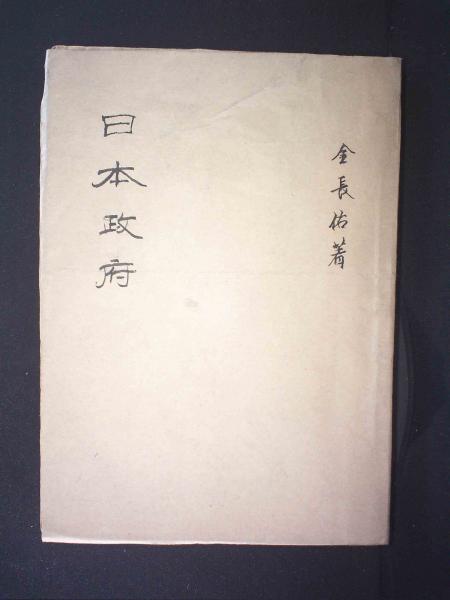 金長佑著
日本政府